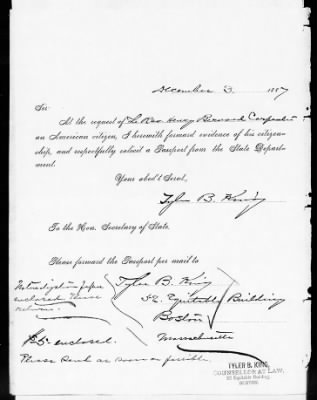 December 3 1887
Sir:
At the request of The Rev. Henry Bernard Carpenter
an American citizen, I herewith forward evidence of his citizen-
ship, and respectfully solicit a Passport from the State Depart-
ment.
Your obed't Servt,
Tyler B. King
To the Hon. Secretary of State.
Please forward the Passport per mail to
Tyler B. King
52 Equitable Building
Boston
Massachusetts
Naturalization Papers
enclosed. Please
return.
$5 enclosed.
Please send as soon as possible.
TYLER B. KING,
COUNSELLOR AT LAW,
52 Equitable Building
BOSTON.